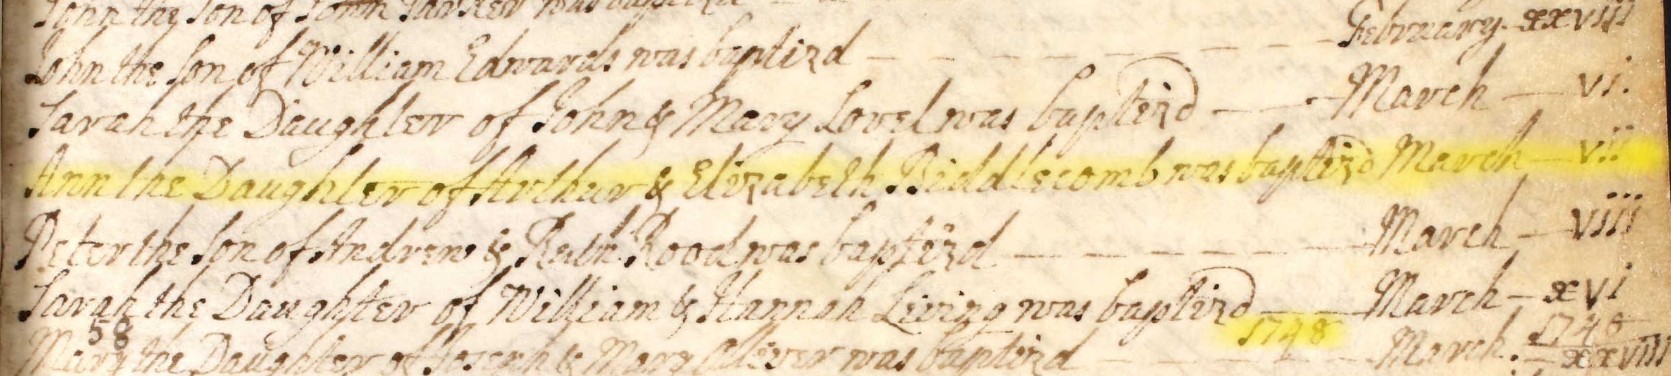 John the Son of John was baptizd
John the Son of William Edwards was baptizd — — — — — — February — xxviii
Sarah the Daughter of John & Mary Lovel was baptizd — — March — vi.
Ann the Daughter of Arthur & Elizabeth Biddlecomb was baptizd March — vii
Peter the Son of Andrew & Ruth Rood was baptizd — — — — — March — viii
Sarah the Daughter of William & Hannah Living was baptizd — March — xvi
58 1748 1748
Mary the Daughter of Joseph & Mary was baptizd — — — March. — xxviii